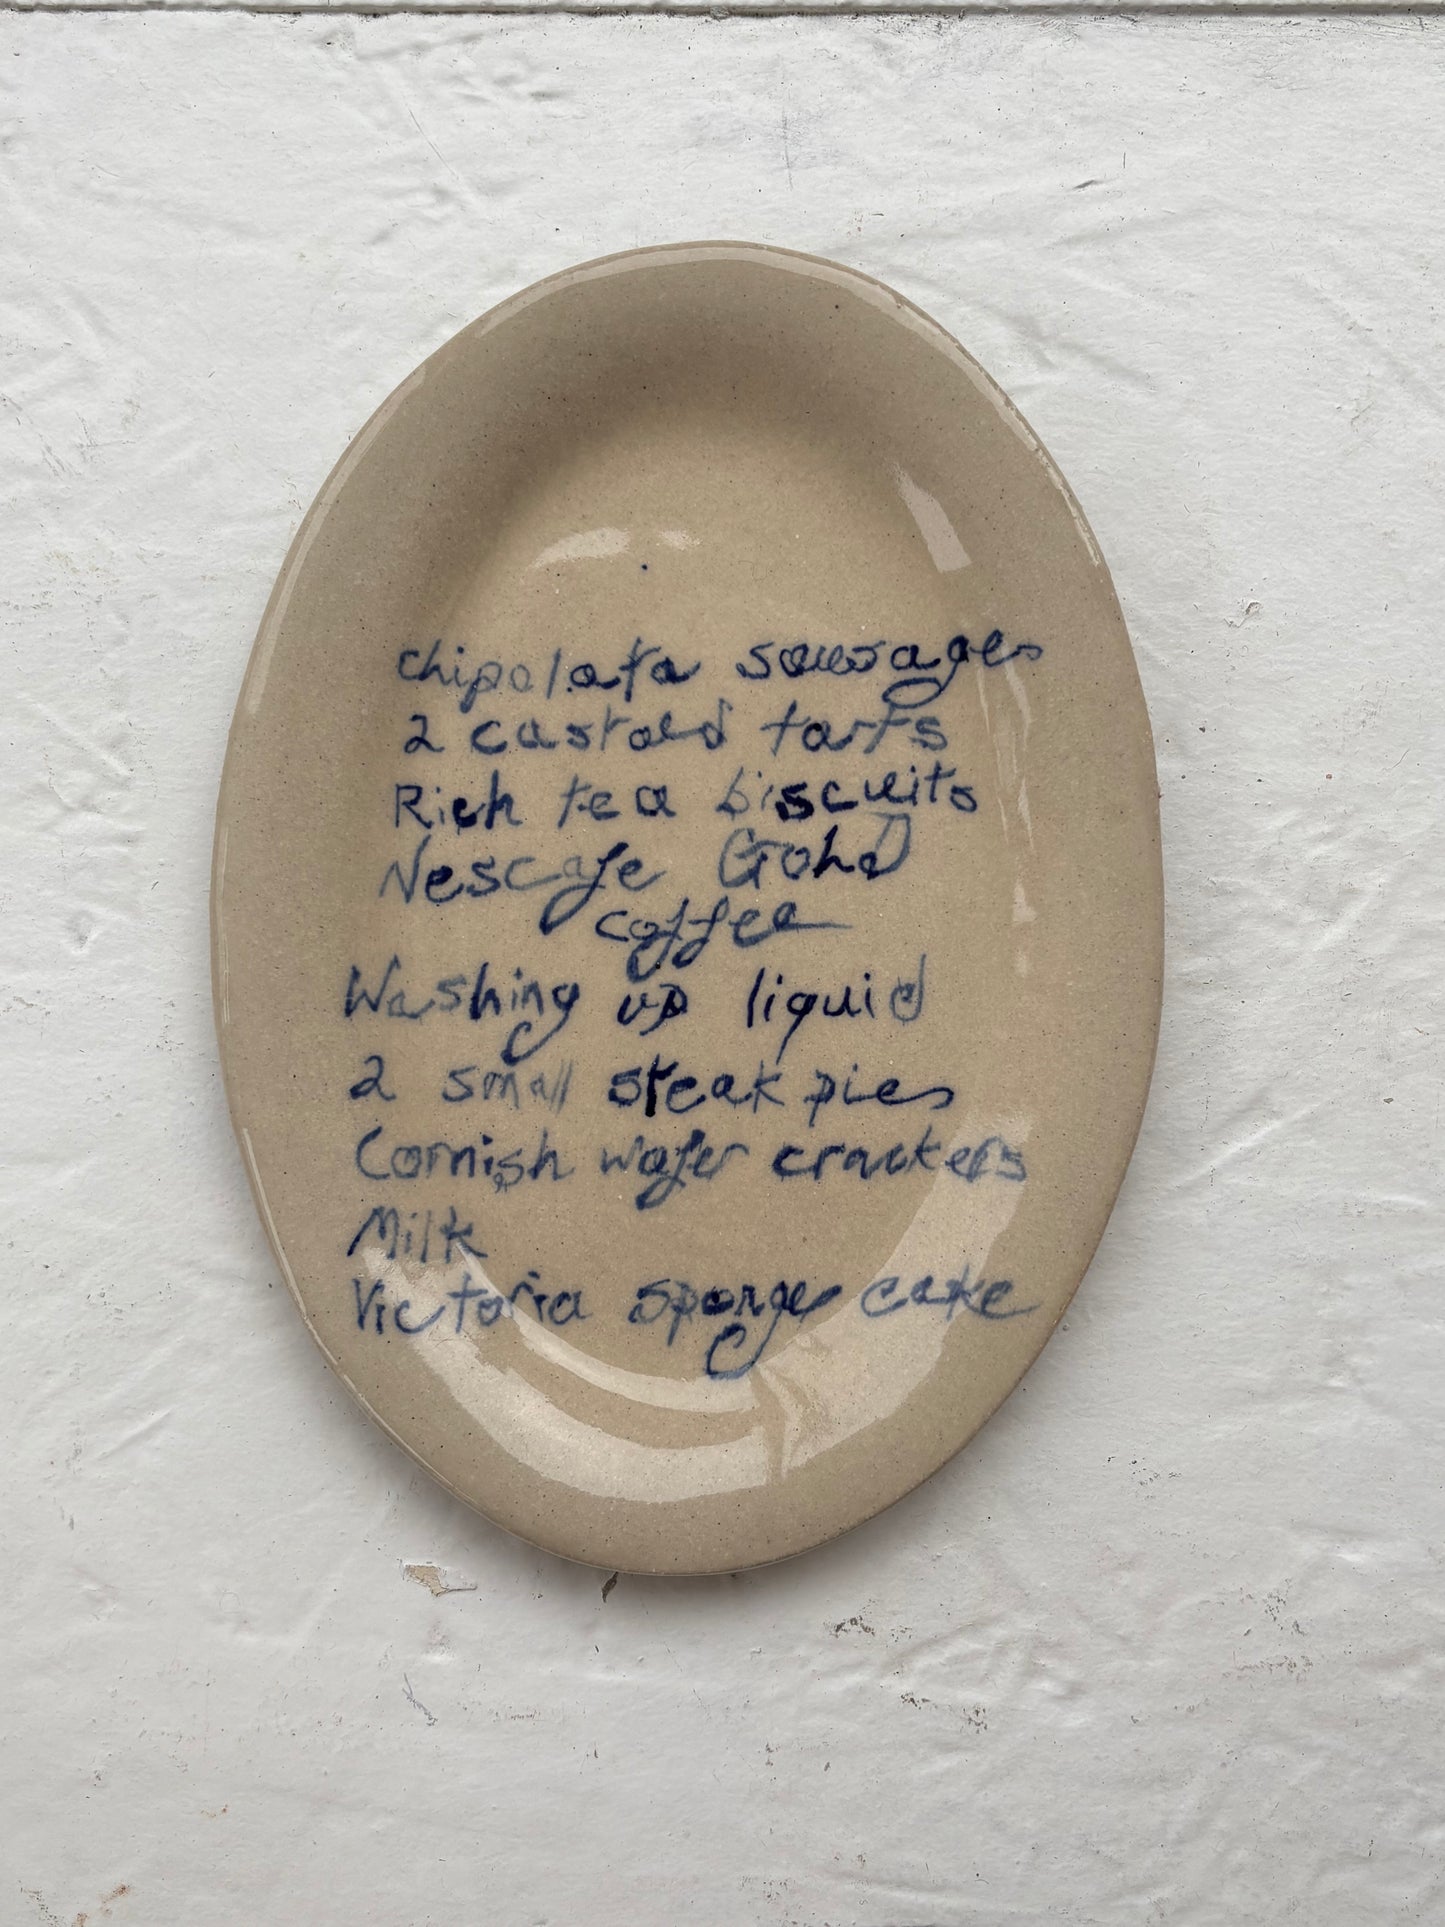 chipolata sausages
2 custard tarts
Rich tea biscuits
Nescafe Gold
coffee
Washing up liquid
2 small steak pies
Cornish wafer crackers
Milk
Victoria sponge cake